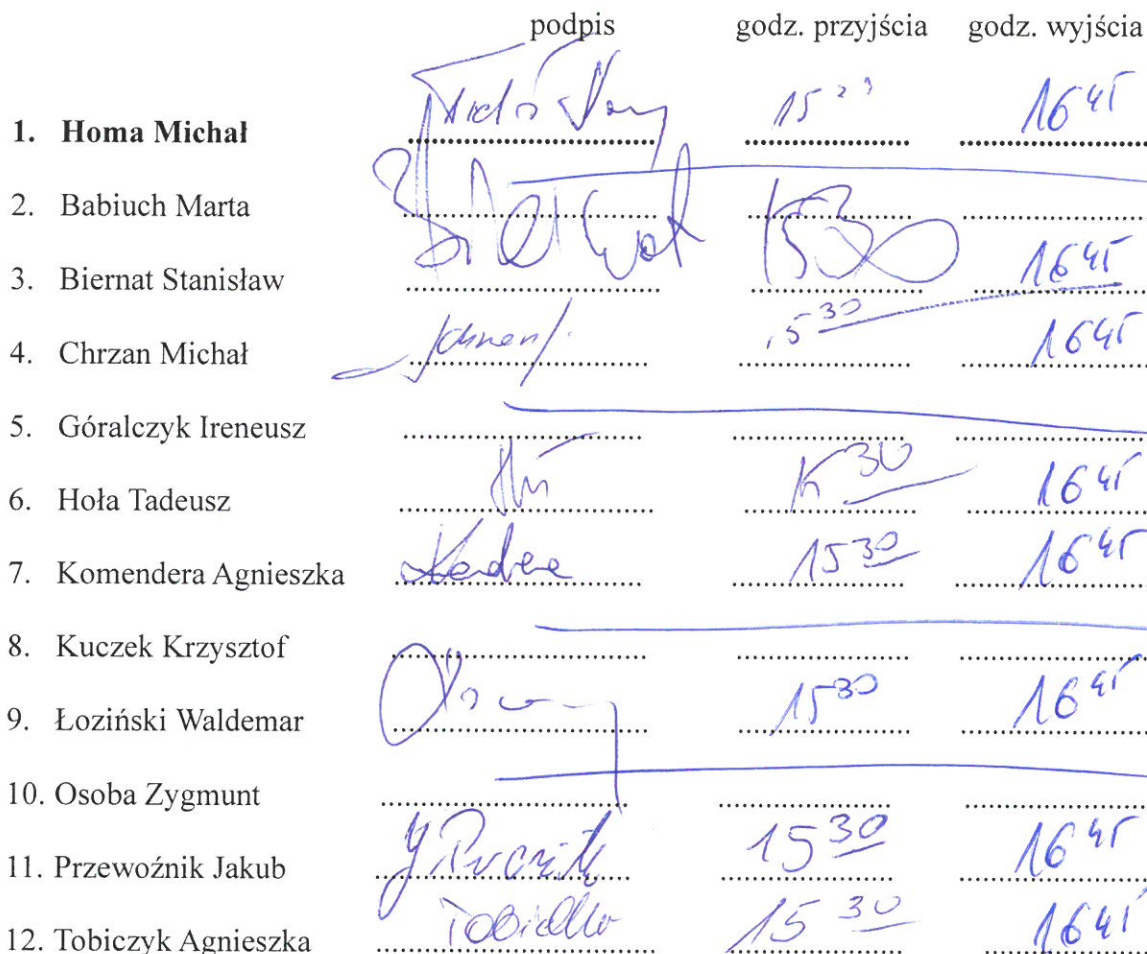 podpis godz. przyjścia godz. wyjścia
1. Homa Michał 15 16 45
2. Babiuch Marta
3. Biernat Stanisław Biernat 1530 16 45
4. Chrzan Michał 15 30 16 45
5. Góralczyk Ireneusz
6. Hoła Tadeusz 15 30 16 45
7. Komendera Agnieszka 15 30 16 45
8. Kuczek Krzysztof
9. Łoziński Waldemar 15 30 16 45
10. Osoba Zygmunt
11. Przewoźnik Jakub 15 30 16 45
12. Tobiczyk Agnieszka 15 30 16 45